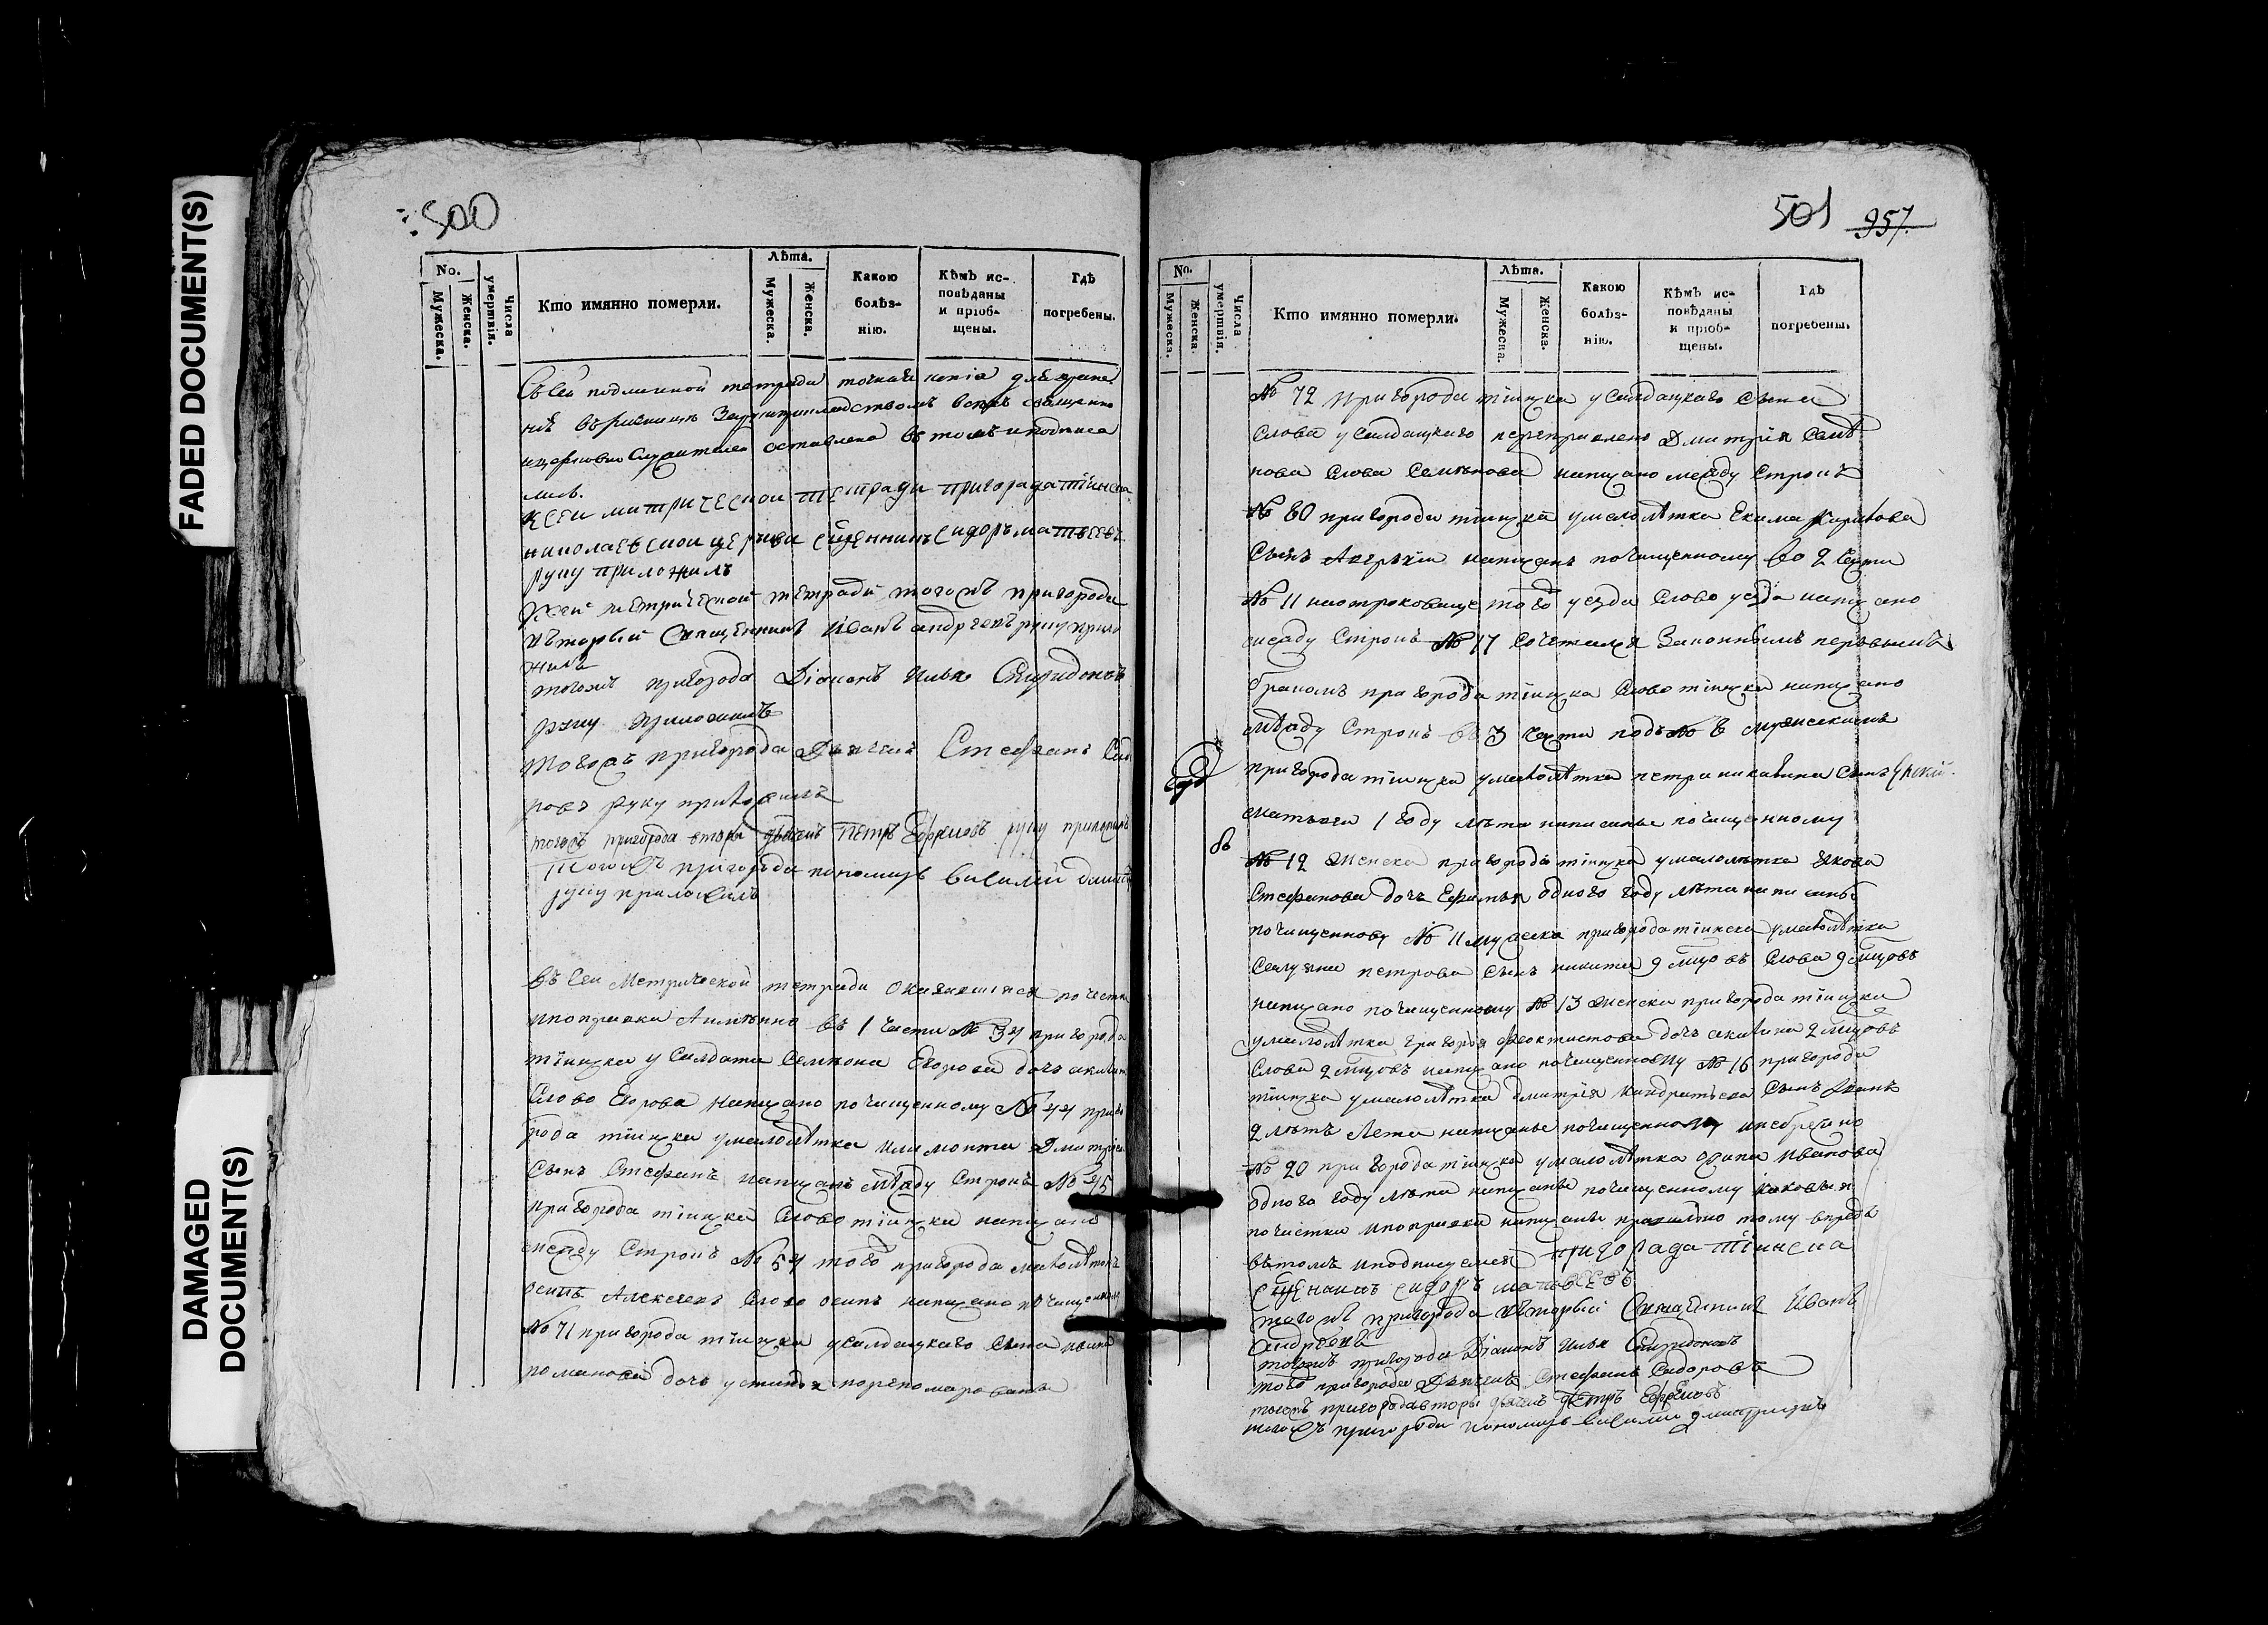 FADED DOCUMENT(S)
DAMAGED
DOCUMENT(S)
500
No.
Мужеска.
Женска.
Числа
умертвія.
Кто имянно померли.
Лѣта.
Мужеска.
Женска.
Какою
болѣз-
нію.
Кѣмъ ис-
повѣданы
и пріоб-
щены.
Гдѣ
погребены.
Съ сей подлинной тетради точная копія для хране
нія въ
и церковно служителей оставлена въ томъ и подписа
лись.
К сеи митрическои тетради пригорада тиинска
николаевскои церкви сщенникъ сидоръ матвеевъ
руку приложилъ
К сей метрической тетради тогожъ пригорода
вторый Священникъ Иванъ андреевъ руку прило
жилъ
тогожъ пригорода Діаконъ Илья Спиридоновъ
руку приложилъ
Тогожъ пригорода Дьячекъ Стефанъ Сидо
ровъ руку приложилъ
тогожъ пригорода вторы дьячекъ Петръ Ефремовъ руку приложилъ
Тогожъ пригорода пономарь василий
руку приложилъ
въ сеи Метрической тетради оказавшиеся почистки
и поправки а имянно въ 1 части № 34 пригорода
тіинска у Салдата Семиона Егорова дочь акилина
Слово Егорова написано почищенному № 44 приго
рода тіинска умалолѣтка Дмитріева
Сынъ Стефанъ написанъ между строкъ № 45
пригорода тіинска Слово тіинска написано
между строкъ № 54 того пригорода малолѣтокъ
осипъ Алексеевъ Слово осипъ написано почищенному
№ 71 пригорода тіинска усалдацкаго сына
романова дочь устинья
501 957.
No.
Мужеска.
Женска.
Числа
умертвія.
Кто имянно померли.
Лѣта.
Мужеска.
Женска.
Какою
болѣз-
нію.
Кѣмъ ис-
повѣданы
и пріоб-
щены.
Гдѣ
погребены.
№ 72 пригорода тіинска усалдацкаго сына
слова усалдацкаго переправлено Дмитрія Семіо
нова слова Семіонова написано между строкъ
№ 80 пригорода тіинска умалолѣтка Екима
Сынъ Аверкіи написанъ почищенному во 2 части
№ 11 того уезда Слово уезда написано
между строкъ № 17 сочетался законнымъ первымъ
бракомъ пригорода тіинска Слово тіинска написано
между строкъ въ 3 части подъ №
пригорода тіинска умалолѣтка петра сынъ
1 году лѣта написаны почищенному
№ 12 женска пригорода тіинска умалолѣтка Якова
Стефанова дочь Ефимья одного году лѣта написаны
почищенному № 11 мужеска пригорода тіинска умалолѣтка
петрова сынъ никита 9 мцовъ слова 9 мцовъ
написано почищенному № 13 женска пригорода тіинска
умалолѣтка Григорья Феоктистова дочь акилина 2 мцовъ
слова 2 мцовъ написано почищенному № 16 пригорода
тіинска умалолѣтка дмитрія кондратьева сынъ Иванъ
2 лѣтъ Лета написаны почищенному
№ 20 пригорода тіинска умалолѣтка осипа иванова
одного году лѣта написаны почищенному каковыя
почистки и поправки написаны правильно тому впредь
вѣтомъ и подписуемся пригорада тіинска
сщенникъ сидоръ матвеевъ
тогожъ пригорода вторый Священникъ Иванъ
Андреевъ
тогожъ пригорода Діаконъ Илья Спиридоновъ
того пригорода Дьячекъ Стефанъ Сидоровъ
тогожъ пригорода вторы дьячекъ Петръ Ефремовъ
тогожъ пригорода пономарь василий дмитриевъ